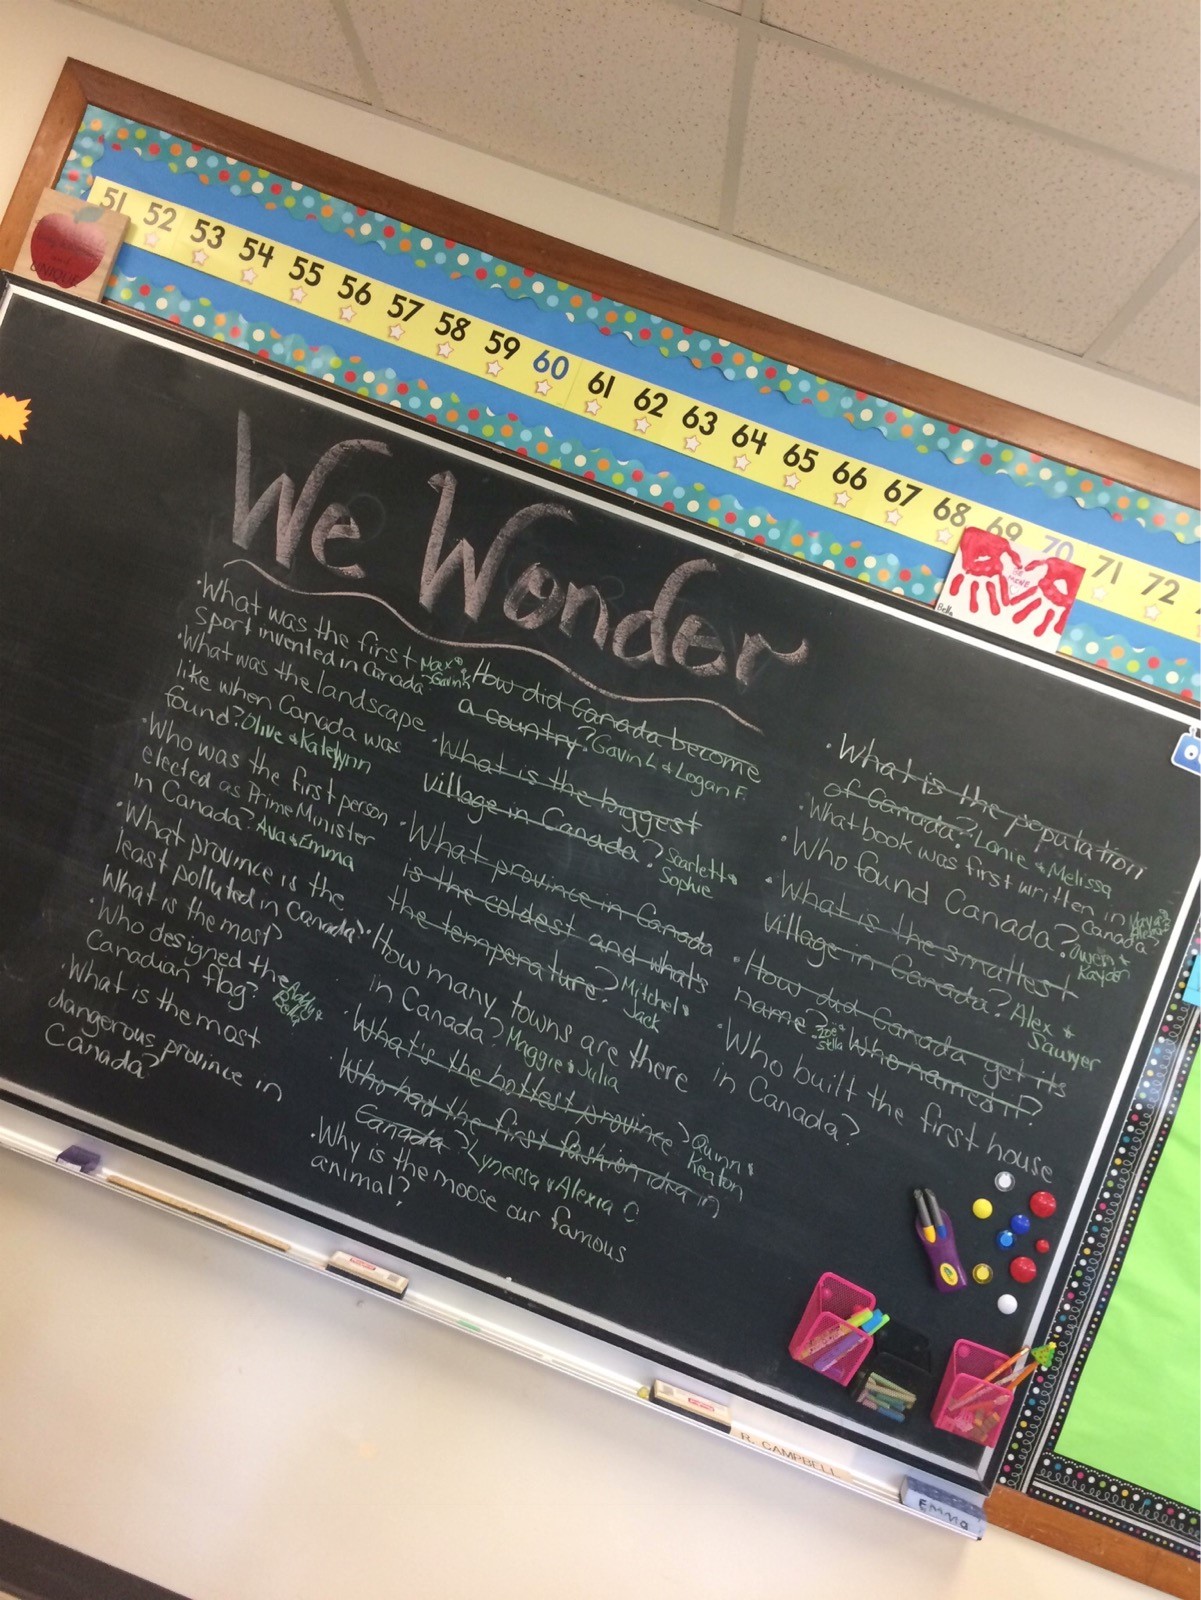 51 52 53 54 55 56 57 58 59 60 61 62 63 64 65 66 67 68 69 70 71 72
UNIQUE
MINE
Bella
We Wonder
·What was the first
sport invented in Canada
Max &
Gavin
·What was the landscape
like when Canada was
found? Olive & Katelynn
·Who was the first person
elected as Prime Minister
in Canada? Ava & Emma
·What province is the
least polluted in Canada?
What is the most?
·Who designed the
Canadian flag?
Addy &
Bella
·What is the most
dangerous province in
Canada?
How did Canada become
a country? Gavin L & Logan F.
·What is the biggest
village in Canada?
Scarlett &
Sophie
·What province in Canada
is the coldest and what's
the temperature?
Mitchel &
Jack
·How many towns are there
in Canada? Maggie & Julia
·What's the hottest province?
Quinn &
Keaton
·Who had the first fashion idea in
Canada? Lynessa & Alexia C
·Why is the moose our famous
animal?
·What is the poputation
of Canada? Lanie & Melissa
·What book was first written in
Canada?
·Who found Canada?
Owen &
Kayden
·What is the smallest
village in Canada? Alex &
Sawyer
·How did Canada get its
name? Zoe &
Stella
Who named it?
·Who built the first house
in Canada?
R. CAMPBELL
EMMA